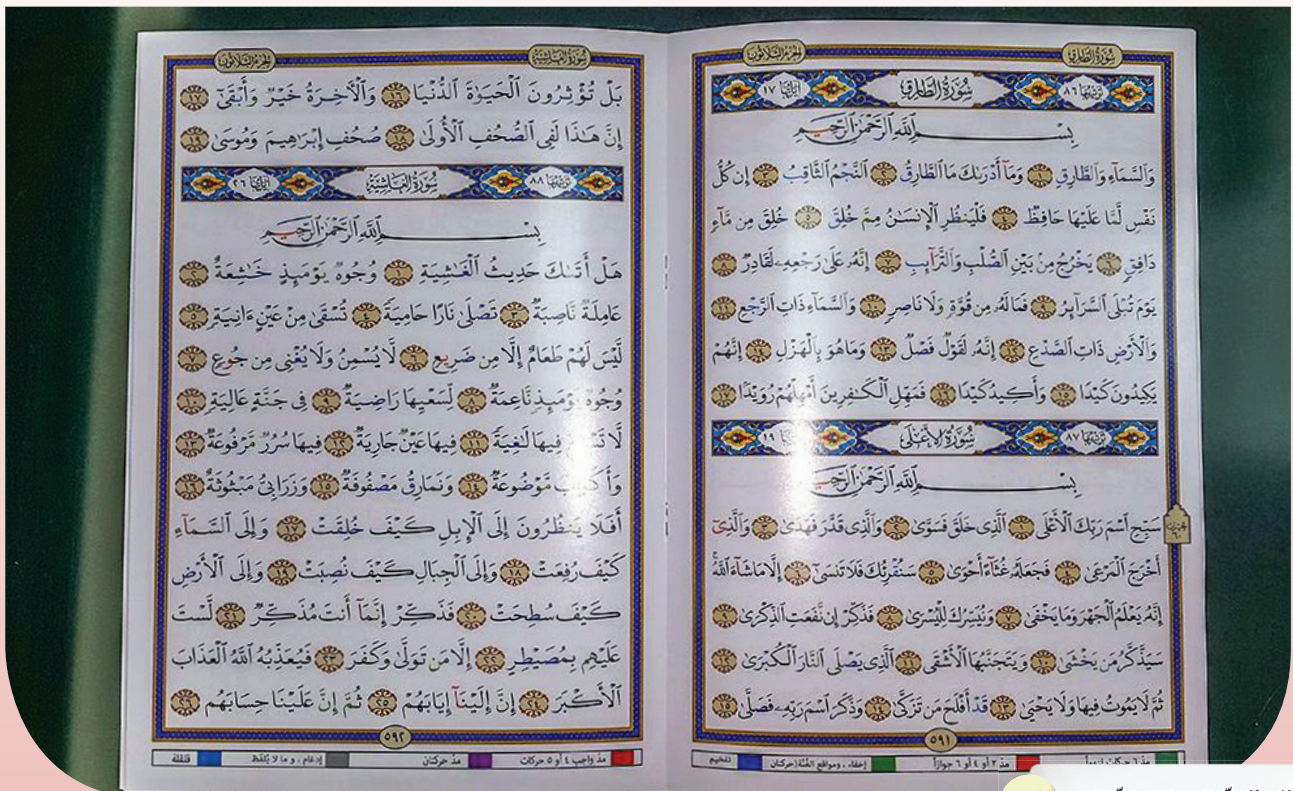 سُورَةُ الطَّارِقِ
الجُزْءُ الثَّلَاثُونَ
تَرْتِيبُهَا ٨٦ سُورَةُ الطَّارِقِ آيَاتُهَا ١٧
بِسْمِ ٱللَّهِ ٱلرَّحْمَٰنِ ٱلرَّحِيمِ
وَٱلسَّمَآءِ وَٱلطَّارِقِ ١ وَمَآ أَدْرَىٰكَ مَا ٱلطَّارِقُ ٢ ٱلنَّجْمُ ٱلثَّاقِبُ ٣ إِن كُلُّ
نَفْسٍ لَّمَّا عَلَيْهَا حَافِظٌ ٤ فَلْيَنظُرِ ٱلْإِنسَٰنُ مِمَّ خُلِقَ ٥ خُلِقَ مِن مَّآءٍ
دَافِقٍ ٦ يَخْرُجُ مِنۢ بَيْنِ ٱلصُّلْبِ وَٱلتَّرَآئِبِ ٧ إِنَّهُۥ عَلَىٰ رَجْعِهِۦ لَقَادِرٌ ٨
يَوْمَ تُبْلَى ٱلسَّرَآئِرُ ٩ فَمَا لَهُۥ مِن قُوَّةٍ وَلَا نَاصِرٍ ١٠ وَٱلسَّمَآءِ ذَاتِ ٱلرَّجْعِ ١١
وَٱلْأَرْضِ ذَاتِ ٱلصَّدْعِ ١٢ إِنَّهُۥ لَقَوْلٌ فَصْلٌ ١٣ وَمَا هُوَ بِٱلْهَزْلِ ١٤ إِنَّهُمْ
يَكِيدُونَ كَيْدًا ١٥ وَأَكِيدُ كَيْدًا ١٦ فَمَهِّلِ ٱلْكَٰفِرِينَ أَمْهِلْهُمْ رُوَيْدًۢا ١٧
تَرْتِيبُهَا ٨٧ سُورَةُ الأَعْلَىٰ ١٩
بِسْمِ ٱللَّهِ ٱلرَّحْمَٰنِ ٱلرَّحِيمِ
سَبِّحِ ٱسْمَ رَبِّكَ ٱلْأَعْلَى ١ ٱلَّذِى خَلَقَ فَسَوَّىٰ ٢ وَٱلَّذِى قَدَّرَ فَهَدَىٰ ٣ وَٱلَّذِىٓ
أَخْرَجَ ٱلْمَرْعَىٰ ٤ فَجَعَلَهُۥ غُثَآءً أَحْوَىٰ ٥ سَنُقْرِئُكَ فَلَا تَنسَىٰٓ ٦ إِلَّا مَا شَآءَ ٱللَّهُ
إِنَّهُۥ يَعْلَمُ ٱلْجَهْرَ وَمَا يَخْفَىٰ ٧ وَنُيَسِّرُكَ لِلْيُسْرَىٰ ٨ فَذَكِّرْ إِن نَّفَعَتِ ٱلذِّكْرَىٰ ٩
سَيَذَّكَّرُ مَن يَخْشَىٰ ١٠ وَيَتَجَنَّبُهَا ٱلْأَشْقَى ١١ ٱلَّذِى يَصْلَى ٱلنَّارَ ٱلْكُبْرَىٰ ١٢
ثُمَّ لَا يَمُوتُ فِيهَا وَلَا يَحْيَىٰ ١٣ قَدْ أَفْلَحَ مَن تَزَكَّىٰ ١٤ وَذَكَرَ ٱسْمَ رَبِّهِۦ فَصَلَّىٰ ١٥
٥٩١
مدّ ٢ أو ٤ أو ٦ جوازاً إخفاء، ومواقع الغُنَّة (حركتان) تفخيم
سُورَةُ الغَاشِيَةِ
الجُزْءُ الثَّلَاثُونَ
بَلْ تُؤْثِرُونَ ٱلْحَيَوٰةَ ٱلدُّنْيَا ١٦ وَٱلْأٓخِرَةُ خَيْرٌ وَأَبْقَىٰٓ ١٧
إِنَّ هَٰذَا لَفِى ٱلصُّحُفِ ٱلْأُولَىٰ ١٨ صُحُفِ إِبْرَٰهِيمَ وَمُوسَىٰ ١٩
تَرْتِيبُهَا ٨٨ سُورَةُ الغَاشِيَةِ آيَاتُهَا ٢٦
بِسْمِ ٱللَّهِ ٱلرَّحْمَٰنِ ٱلرَّحِيمِ
هَلْ أَتَىٰكَ حَدِيثُ ٱلْغَٰشِيَةِ ١ وُجُوهٌ يَوْمَئِذٍ خَٰشِعَةٌ ٢
عَامِلَةٌ نَّاصِبَةٌ ٣ تَصْلَىٰ نَارًا حَامِيَةً ٤ تُسْقَىٰ مِنْ عَيْنٍ ءَانِيَةٍ ٥
لَّيْسَ لَهُمْ طَعَامٌ إِلَّا مِن ضَرِيعٍ ٦ لَّا يُسْمِنُ وَلَا يُغْنِى مِن جُوعٍ ٧
وُجُوهٌ يَوْمَئِذٍ نَّاعِمَةٌ ٨ لِّسَعْيِهَا رَاضِيَةٌ ٩ فِى جَنَّةٍ عَالِيَةٍ ١٠
لَّا تَسْمَعُ فِيهَا لَٰغِيَةً ١١ فِيهَا عَيْنٌ جَارِيَةٌ ١٢ فِيهَا سُرُرٌ مَّرْفُوعَةٌ ١٣
وَأَكْوَابٌ مَّوْضُوعَةٌ ١٤ وَنَمَارِقُ مَصْفُوفَةٌ ١٥ وَزَرَابِىُّ مَبْثُوثَةٌ ١٦
أَفَلَا يَنظُرُونَ إِلَى ٱلْإِبِلِ كَيْفَ خُلِقَتْ ١٧ وَإِلَى ٱلسَّمَآءِ
كَيْفَ رُفِعَتْ ١٨ وَإِلَى ٱلْجِبَالِ كَيْفَ نُصِبَتْ ١٩ وَإِلَى ٱلْأَرْضِ
كَيْفَ سُطِحَتْ ٢٠ فَذَكِّرْ إِنَّمَآ أَنتَ مُذَكِّرٌ ٢١ لَّسْتَ
عَلَيْهِم بِمُصَيْطِرٍ ٢٢ إِلَّا مَن تَوَلَّىٰ وَكَفَرَ ٢٣ فَيُعَذِّبُهُ ٱللَّهُ ٱلْعَذَابَ
ٱلْأَكْبَرَ ٢٤ إِنَّ إِلَيْنَآ إِيَابَهُمْ ٢٥ ثُمَّ إِنَّ عَلَيْنَا حِسَابَهُم ٢٦
٥٩٢
مدّ واجب ٤ أو ٥ حركات مدّ حركتان إدغام، وما لا يُلفظ قلقلة